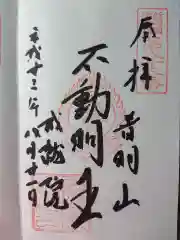 奉拝
音羽山
不動明王
成就院
平成十二年八月十一日